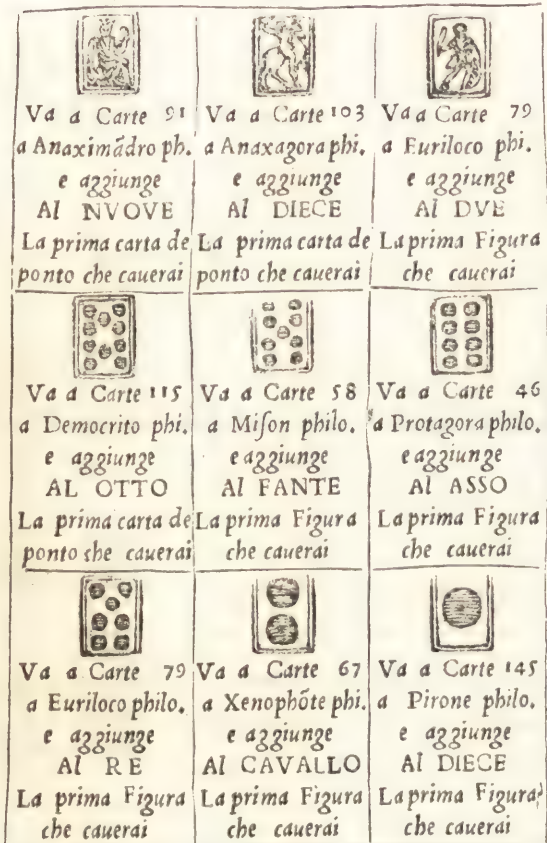 Va a Carte 91
a Anaximãdro ph.
e aggiunge
Al NVOVE
La prima carta de
ponto che cauerai
Va a Carte 103
a Anaxagora phi.
e aggiunge
Al DIECE
La prima carta de
ponto che cauerai
Va a Carte 79
a Euriloco phi.
e aggiunge
Al DVE
La prima Figura
che cauerai
Va a Carte 115
a Democrito phi.
e aggiunge
AL OTTO
La prima carta de
ponto che cauerai
Va a Carte 58
a Miſon philo.
e aggiunge
Al FANTE
La prima Figura
che cauerai
Va a Carte 46
a Protagora philo.
e aggiunge
Al ASSO
La prima Figura
che cauerai
Va a Carte 79
a Euriloco philo.
e aggiunge
Al RE
La prima Figura
che cauerai
Va a Carte 67
a Xenophõte phi.
e aggiunge
Al CAVALLO
La prima Figura
che cauerai
Va a Carte 145
a Pirone philo.
e aggiunge
Al DIECE
La prima Figura
che cauerai